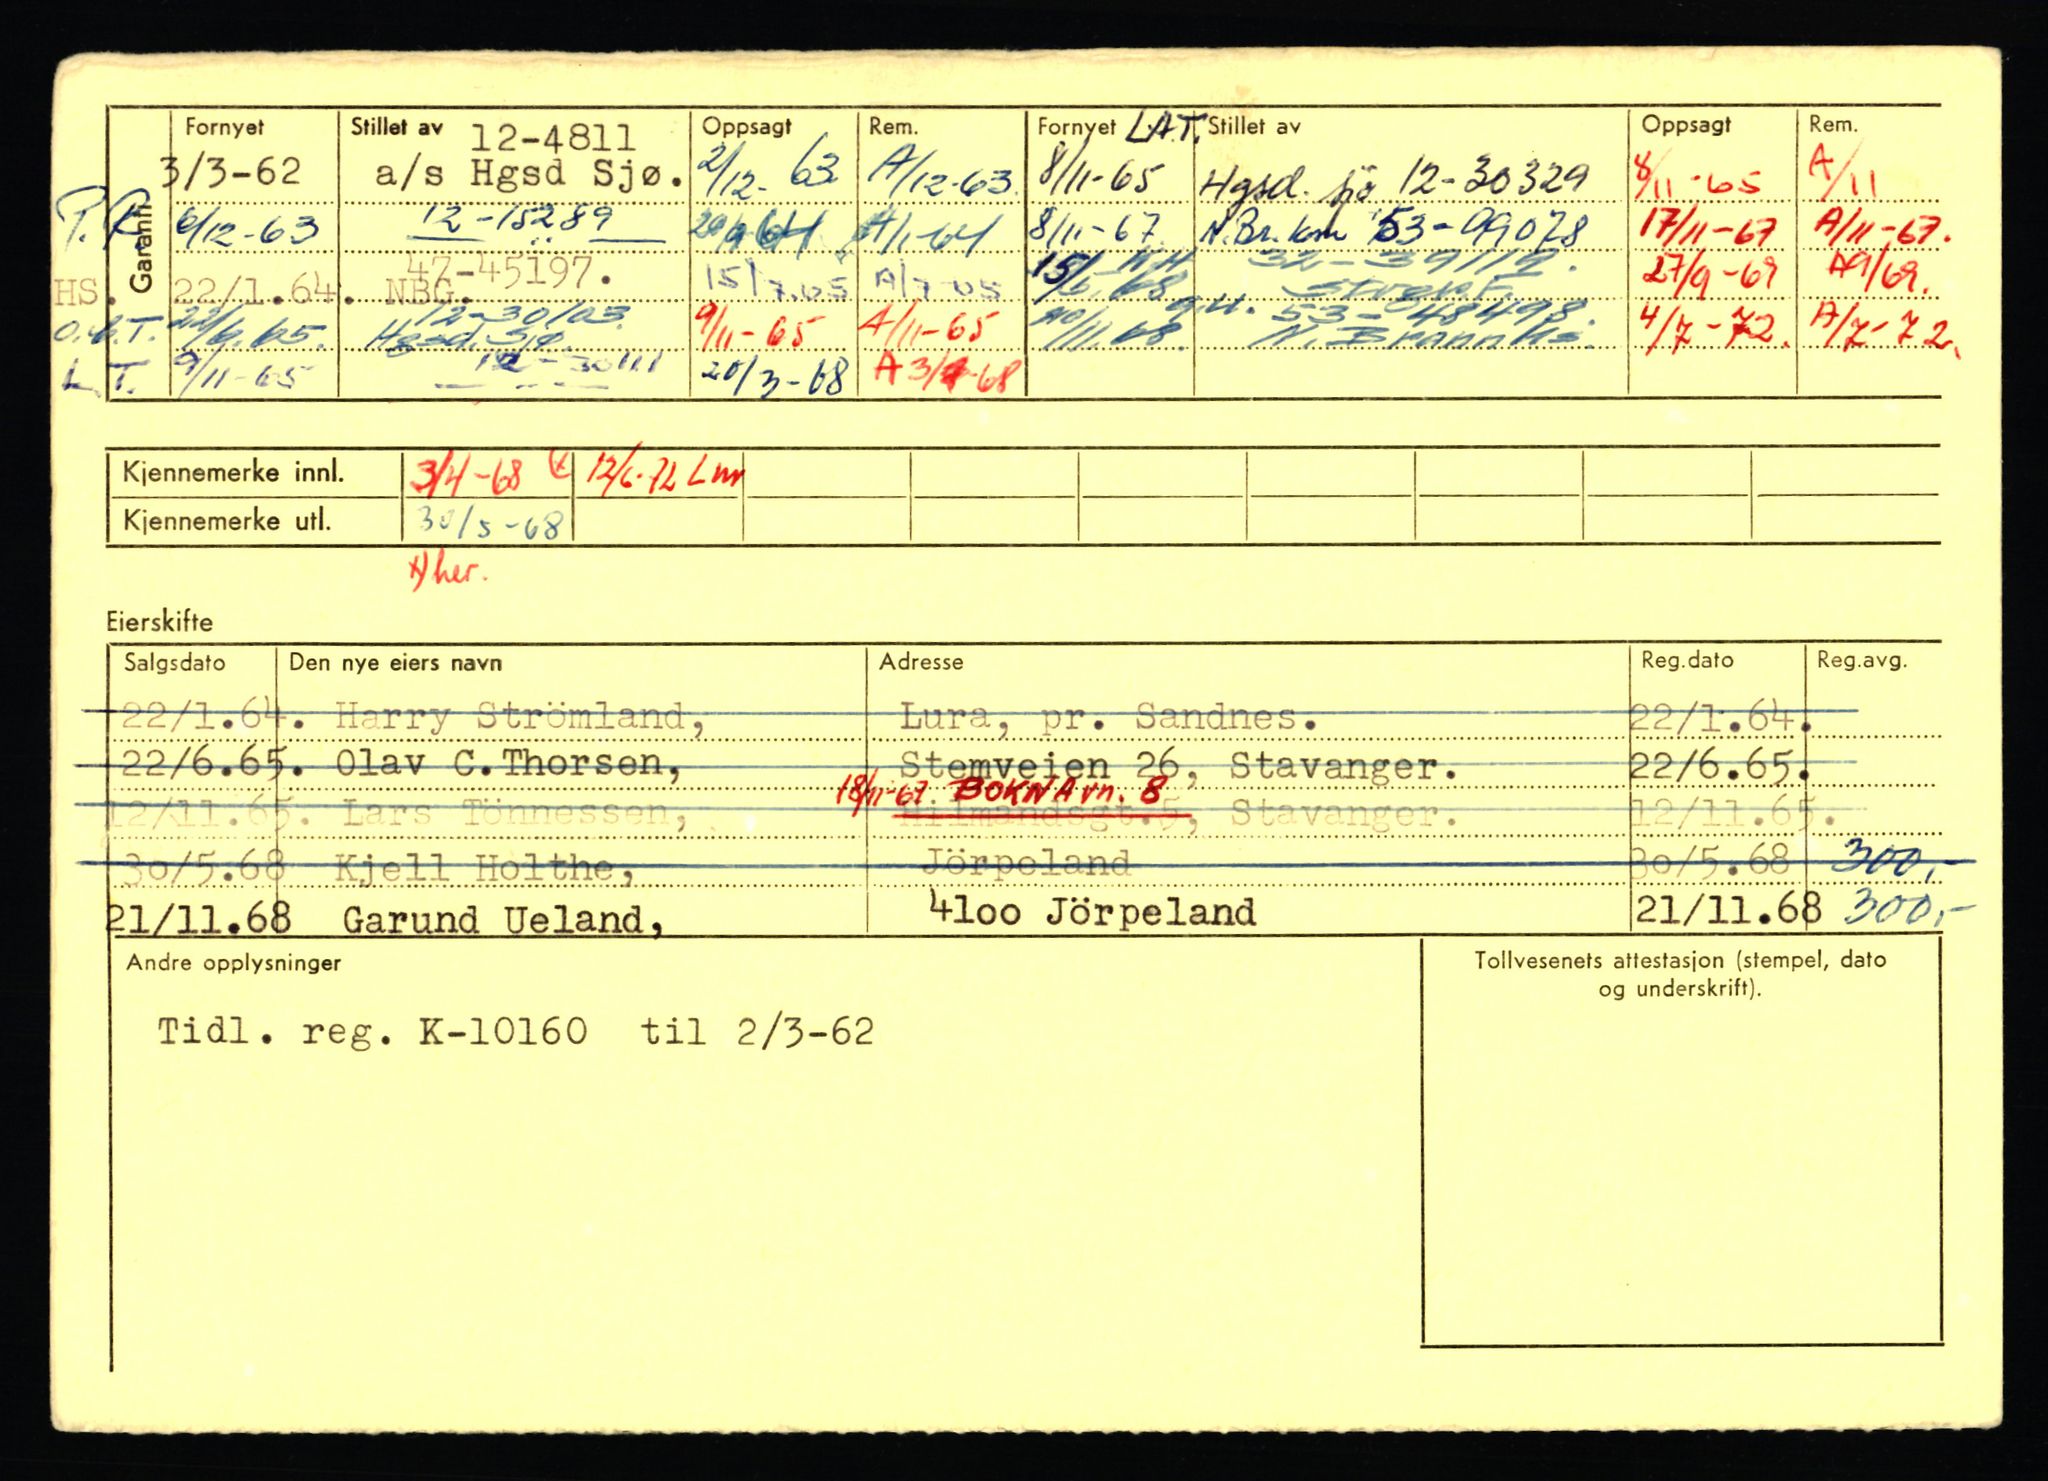 Garanti
Fornyet Stillet av Oppsagt Rem. Fornyet L.A.T. Stillet av Oppsagt Rem.
12-4811
3/3-62 a/s Hgsd Sjø. 2/12-63 A/12-63. 8/11-65 Hgsd. sjö 12-30329 8/11-65 A/11
P.R. 6/12-63 12-15289 A/1-64 8/11-67. N.Br. 53-99078 17/11-67 A/11-67.
47-45197.
HS. 22/1.64. NBG. 15/7.65 A/7-65 15/6.68 32-39112. 27/9-69 A9/69.
12-30103.
O.C.T. 22/6.65. Hgsd. Sjø. 9/11-65 A/11-65 11.68. G.U. 53-48498. 4/7-72. A/7-72.
N. Brannks.
L.T. 9/11-65 12-30111 20/3-68 A3/4-68
Kjennemerke innl. 3/4-68 x) 12/6-72 Lnr
Kjennemerke utl. 30/5-68
x) her.
Eierskifte
Salgsdato Den nye eiers navn Adresse Reg.dato Reg.avg.
22/1.64. Harry Strömland, Lura, pr. Sandnes. 22/1.64.
22/6.65. Olav C.Thorsen, Stemveien 26, Stavanger. 22/6.65.
18/11-67 BOKNAvn. 8
12/11.65. Lars Tönnessen, Hilmandsgt.5, Stavanger. 12/11.65.
30/5.68 Kjell Holthe, Jörpeland 30/5.68 300,-
21/11.68 Garund Ueland, 4100 Jörpeland 21/11.68 300,-
Andre opplysninger
Tollvesenets attestasjon (stempel, dato
og underskrift).
Tidl. reg. K-10160 til 2/3-62